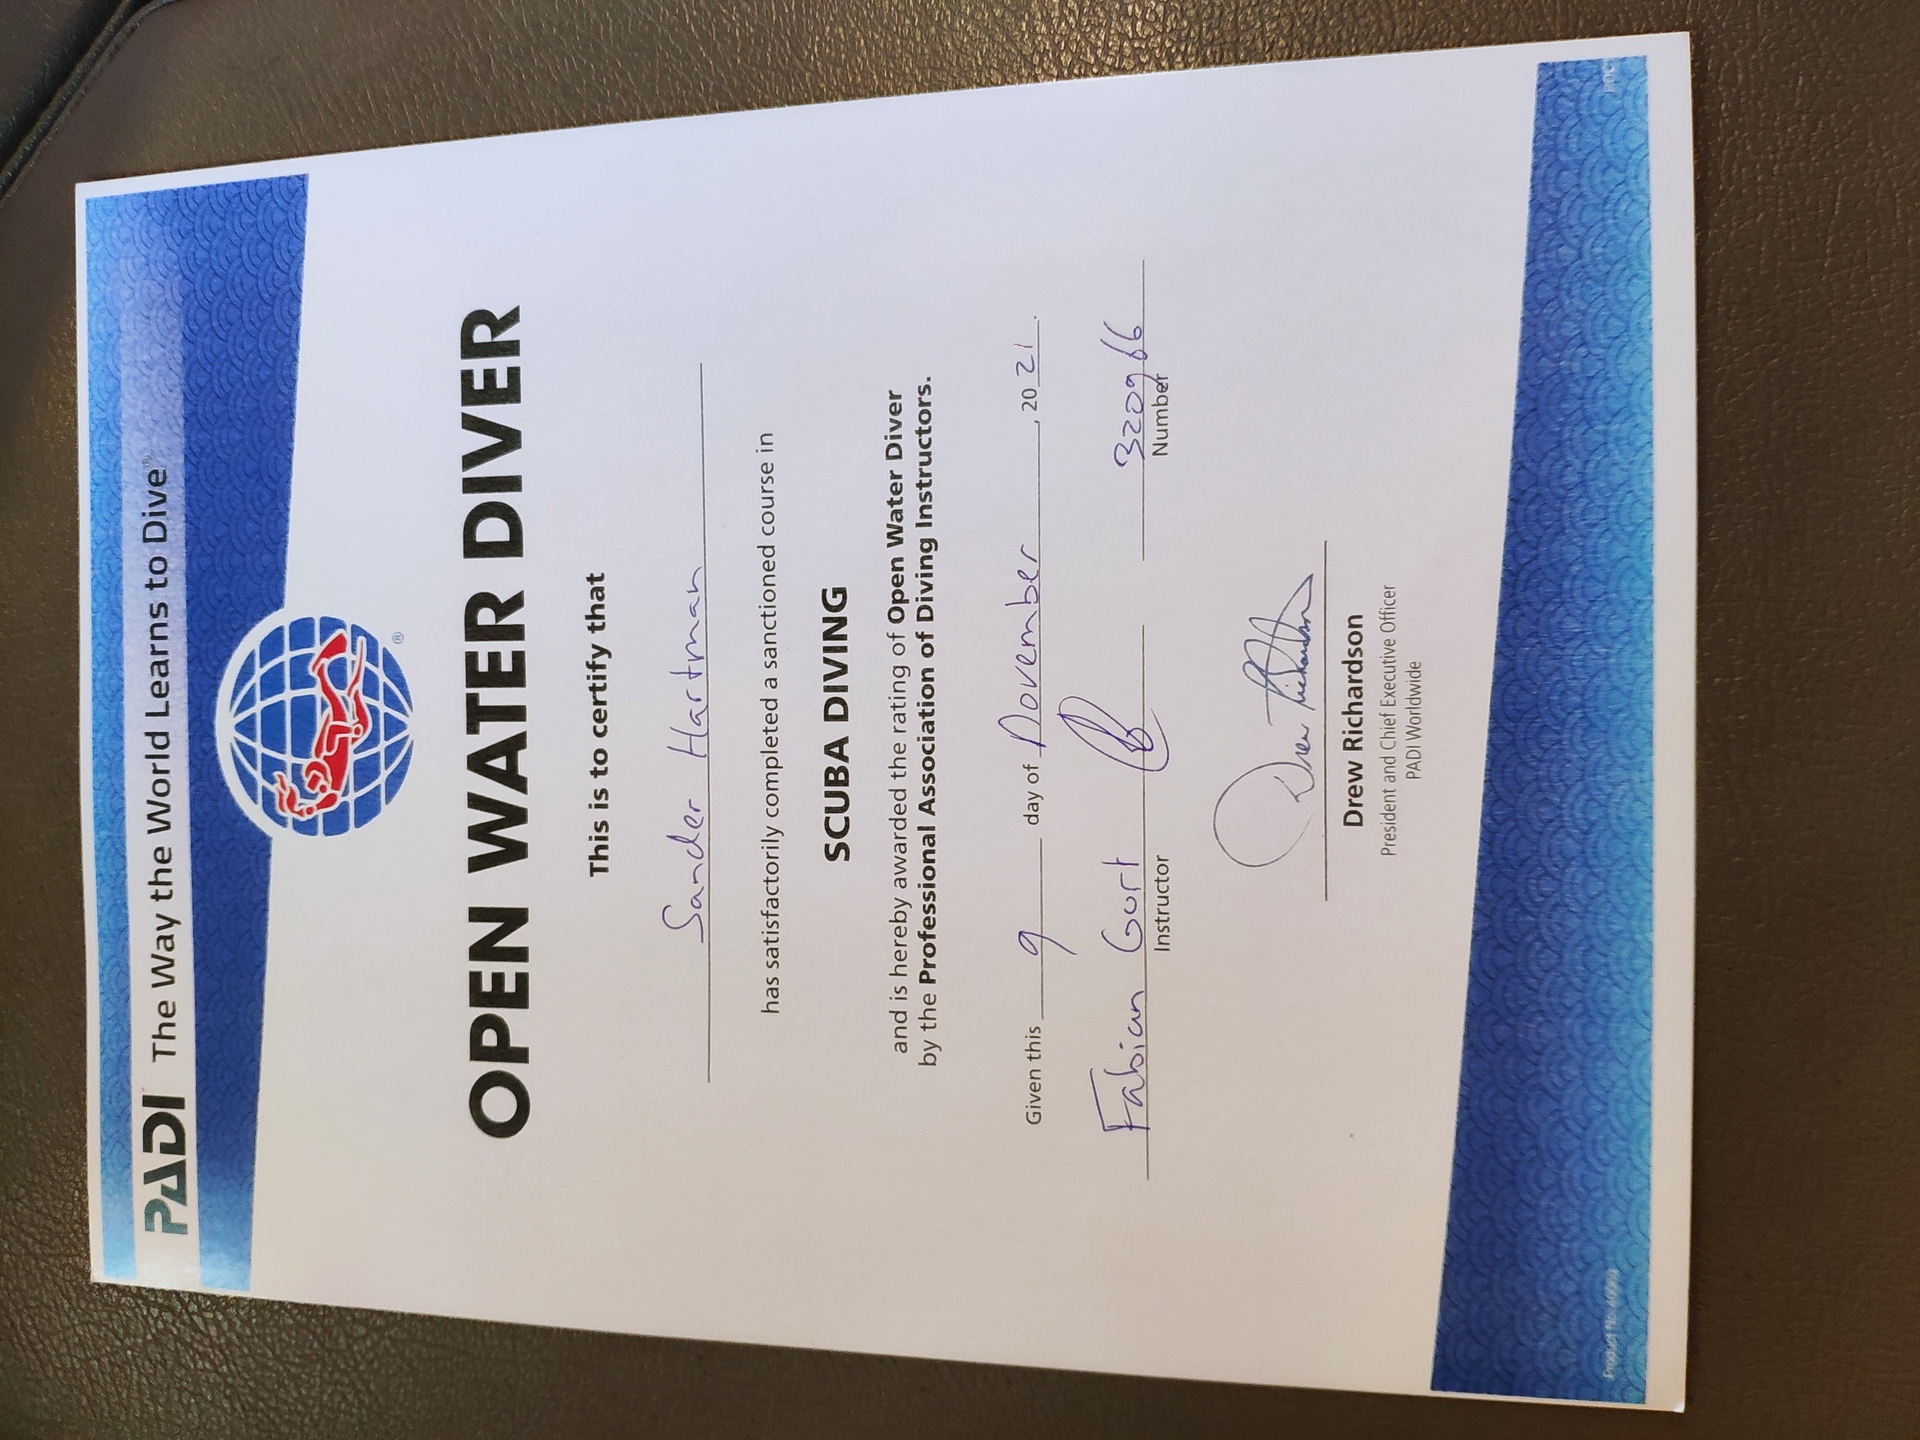 PADI The Way the World Learns to Dive
®
OPEN WATER DIVER
This is to certify that
Sander Hartman
has satisfactorily completed a sanctioned course in
SCUBA DIVING
and is hereby awarded the rating of Open Water Diver
by the Professional Association of Diving Instructors.
Given this 9 day of November, 20 21.
Fabian Gort 320966
Instructor Number
Drew Richardson
Drew Richardson
President and Chief Executive Officer
PADI Worldwide
Product No.